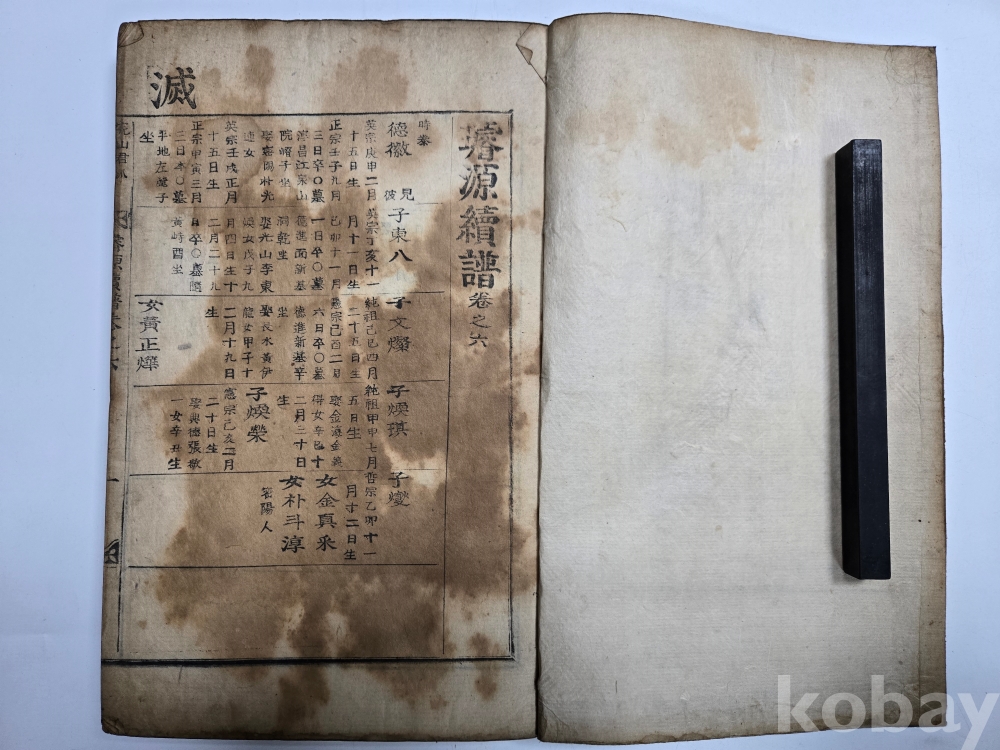 滅
璿源續譜 卷之六
時泰
德徽 見彼
英宗庚申二月
十五日生
正宗壬子九月
三日卒〇墓
海昌江東山
院崎子坐
娶密陽朴光
女
英宗壬戌正月
十五日生
正宗甲寅三月
三日卒〇墓
平地左麓子
坐
子東八
英宗丁亥十一
月十一日生
己卯十一月
一日卒〇墓
德進面新基
洞乾坐
娶光山李東
女戊子九
月四日生十
二月二十九
日卒〇墓
黃峙酉坐
子文燦
純祖己巳四月
二十五日生
憲宗己酉二月
六日卒〇墓
德進新基辛
坐
娶長水黃伊
龍女甲子十
二月十九日
生
女黃正燁
子煥琪
純祖甲申七月
五日生
娶金海金義
得女辛巳十
二月三十日
生
子煥榮
憲宗己亥二月
二十日生
娶興德張敬
一女辛丑生
子燮
哲宗乙卯十一
月十二日生
女金真釆
女朴斗淳
密陽人
kobay